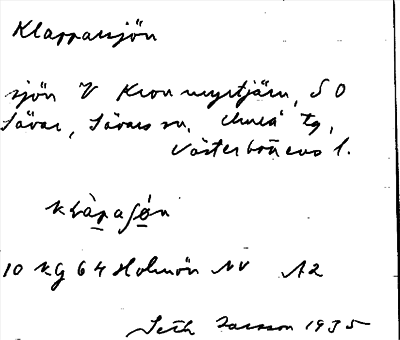 Klapparsjön
sjön V Kronmyrtjärn, SO
Sävar, Sävars sn. Umeå tg,
Västerbottens l.
klàpaʃǿn
10 kg 64 Holmön NV A2
Seth Larsson 1935